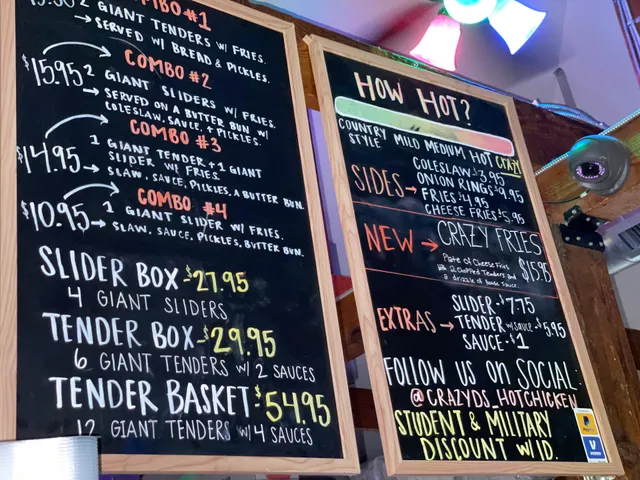 COMBO #1
2 GIANT TENDERS W/ FRIES.
→ SERVED W/ BREAD & PICKLES.
COMBO #2
$15.95 2 GIANT SLIDERS W/ FRIES.
→ SERVED ON A BUTTER BUN W/
COLESLAW, SAUCE, + PICKLES.
COMBO #3
$14.95 1 GIANT TENDER + 1 GIANT
SLIDER W/ FRIES.
→ SLAW, SAUCE, PICKLES, A BUTTER BUN.
COMBO #4
$10.95 1 GIANT SLIDER W/ FRIES.
→ SLAW, SAUCE, PICKLES, BUTTER BUN.
SLIDER BOX - $27.95
4 GIANT SLIDERS
TENDER BOX - $29.95
6 GIANT TENDERS W/ 2 SAUCES
TENDER BASKET - $54.95
12 GIANT TENDERS W/ 4 SAUCES
HOW HOT?
COUNTRY STYLE MILD MEDIUM HOT CRAZY
SIDES → COLESLAW $3.95
ONION RINGS $9.95
FRIES $4.95
CHEESE FRIES $5.95
NEW → CRAZY FRIES
Plate of Cheese Fries
2 chopped Tenders and
a drizzle of house sauce.
$15.95
EXTRAS → SLIDER - $7.75
TENDER W/ SAUCE - $5.95
SAUCE - $1
FOLLOW US ON SOCIAL:
@CRAZYDS_HOTCHICKEN
STUDENT & MILITARY
DISCOUNT W/ ID.